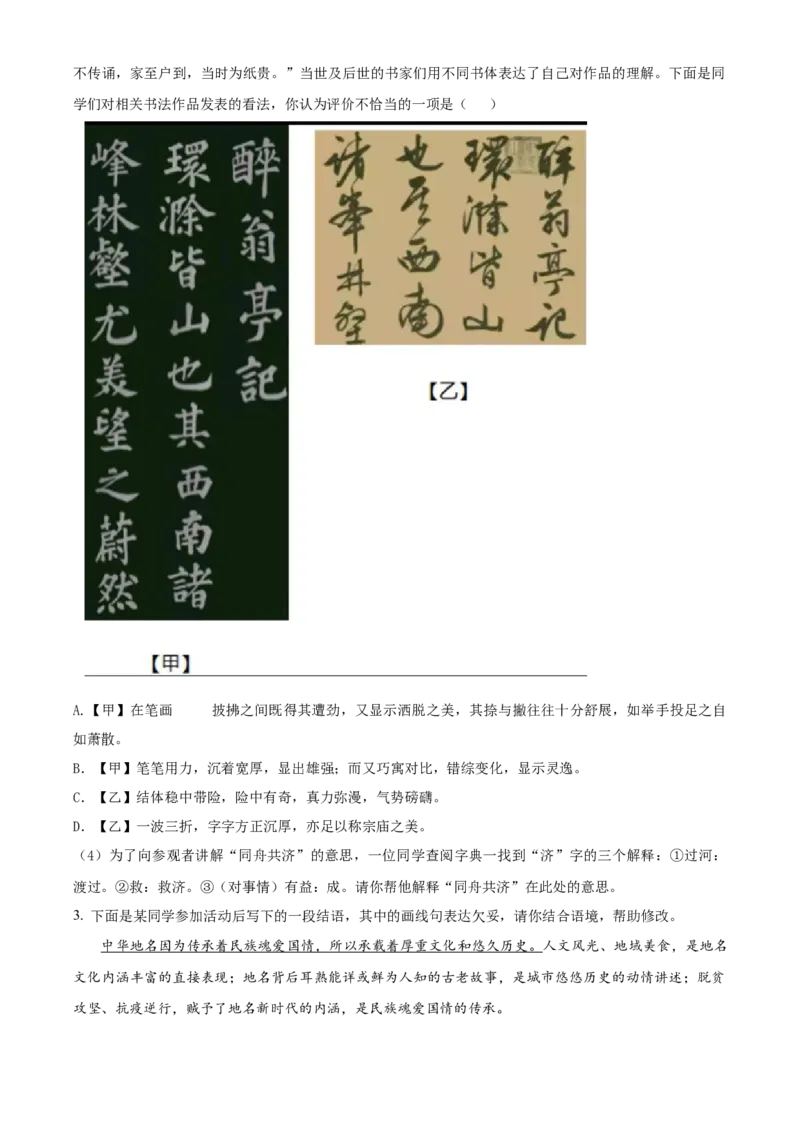 不传诵，家至户到，当时为纸贵。”当世及后世的书家们用不同书体表达了自己对作品的理解。下面是同
学们对相关书法作品发表的看法，你认为评价不恰当的一项是（　）
醉翁亭記
環滁皆山也其西南諸
峰林壑尤美望之蔚然
【甲】
醉翁亭记
環滁皆山
也其西南
诸峯林壑
【乙】
A.【甲】在笔画　　披拂之间既得其遭劲，又显示洒脱之美，其捺与撇往往十分舒展，如举手投足之自
如萧散。
B. 【甲】笔笔用力，沉着宽厚，显出雄强；而又巧寓对比，错综变化，显示灵逸。
C. 【乙】结体稳中带险，险中有奇，真力弥漫，气势磅礴。
D. 【乙】一波三折，字字方正沉厚，亦足以称宗庙之美。
（4）为了向参观者讲解“同舟共济”的意思，一位同学查阅字典一找到“济”字的三个解释：①过河：
渡过。②救：救济。③（对事情）有益：成。请你帮他解释“同舟共济”在此处的意思。
3. 下面是某同学参加活动后写下的一段结语，其中的画线句表达欠妥，请你结合语境，帮助修改。
中华地名因为传承着民族魂爱国情，所以承载着厚重文化和悠久历史。人文风光、地域美食，是地名
文化内涵丰富的直接表现；地名背后耳熟能详或鲜为人知的古老故事，是城市悠悠历史的动情讲述；脱贫
攻坚、抗疫逆行，赋予了地名新时代的内涵，是民族魂爱国情的传承。